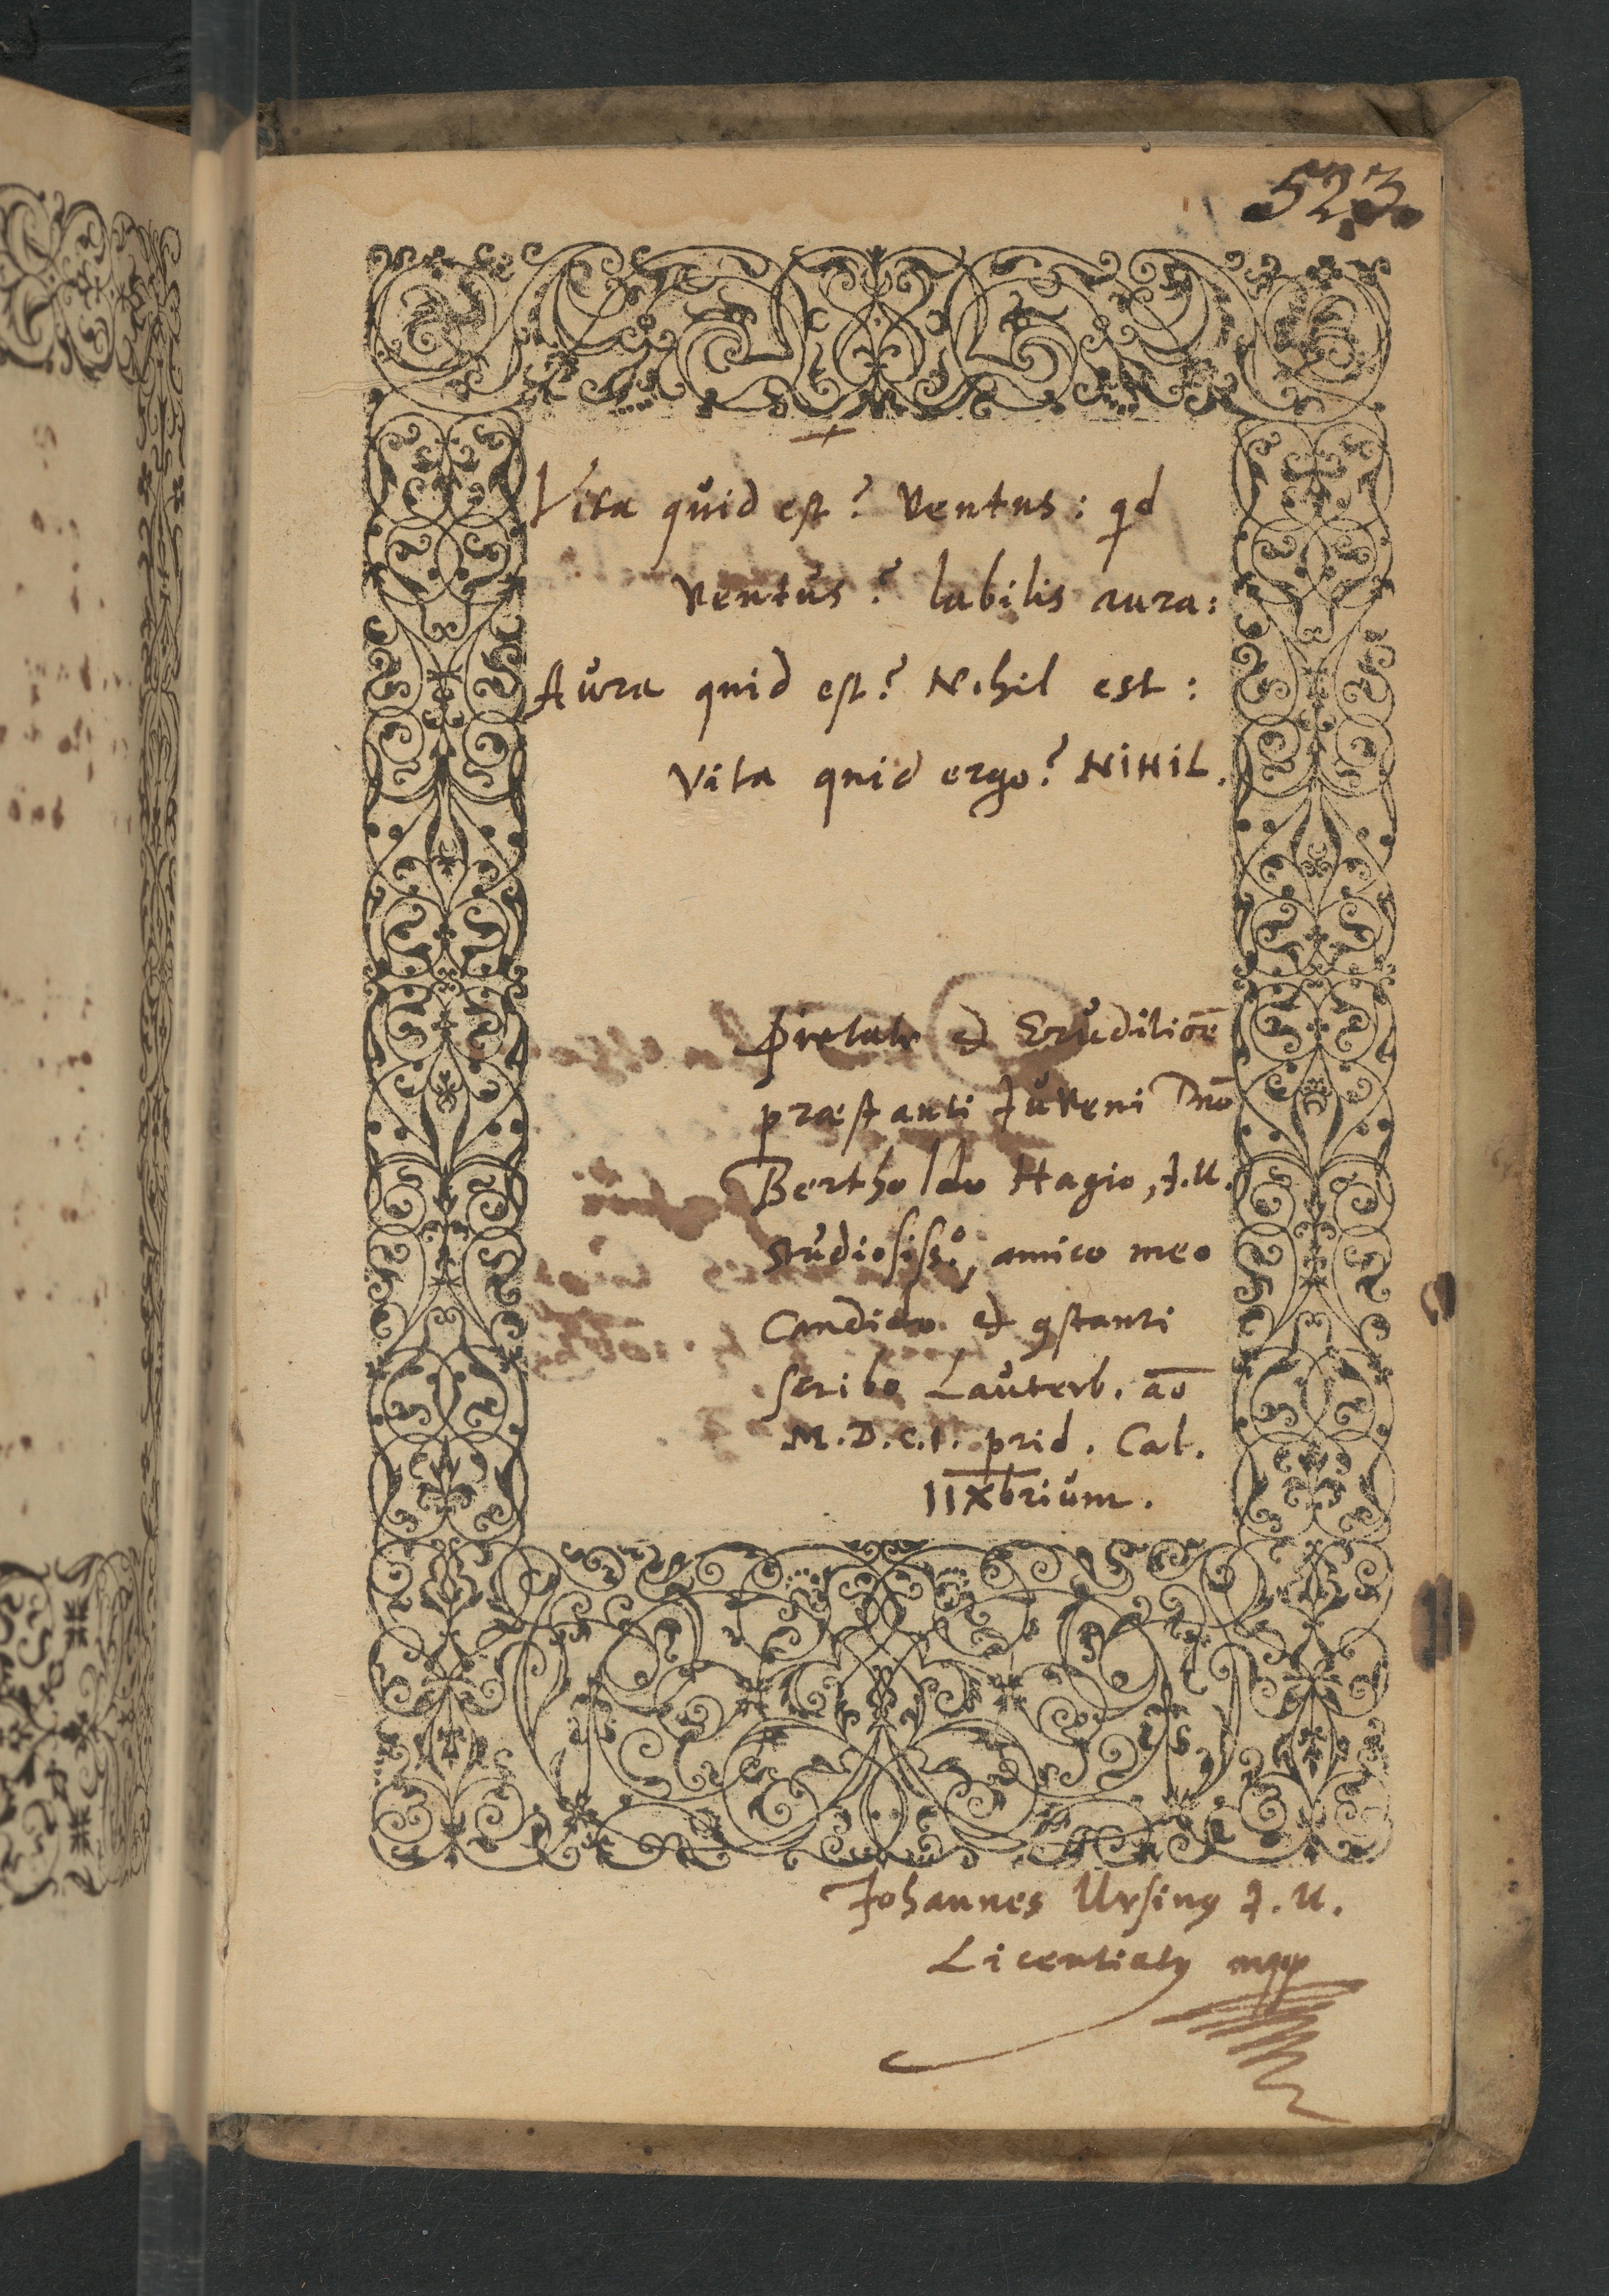 523.
Vita quid est? Ventus: qd
Ventus? labilis aura:
Aura quid est? Nihil est:
Vita quid ergo? NIHIL.
Pietate et Eruditiōe
præstanti Juveni Dn̄o
Bertholdo Hagio, J.U.
Studiosissº, amico meo
Candido et ꝯstanti
scribo Lauterb. aō
M.D.C.I. prid. Cal.
IIXbrium.
Johannes Ursinꝰ J.U.
Licentiatꝰ mpp